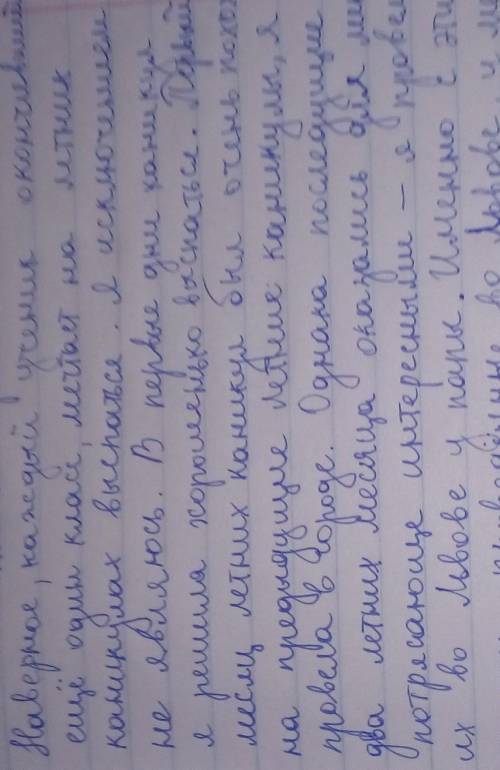 Наверное, каждый ученик окончивший
ещё один класс, мечтает на летних
каникулах выспаться. Я исключением
не являюсь. В первые дни каникул
я решила хорошенько выспаться. Первый
месяц летних каникул был очень похо
на предыдущие летние каникулы, я
провела в городе. Однако последующие
два летних месяца оказались для ме
потрясающе интересными – я провел
их во Львове у пары. Именно с эти
во Львове и